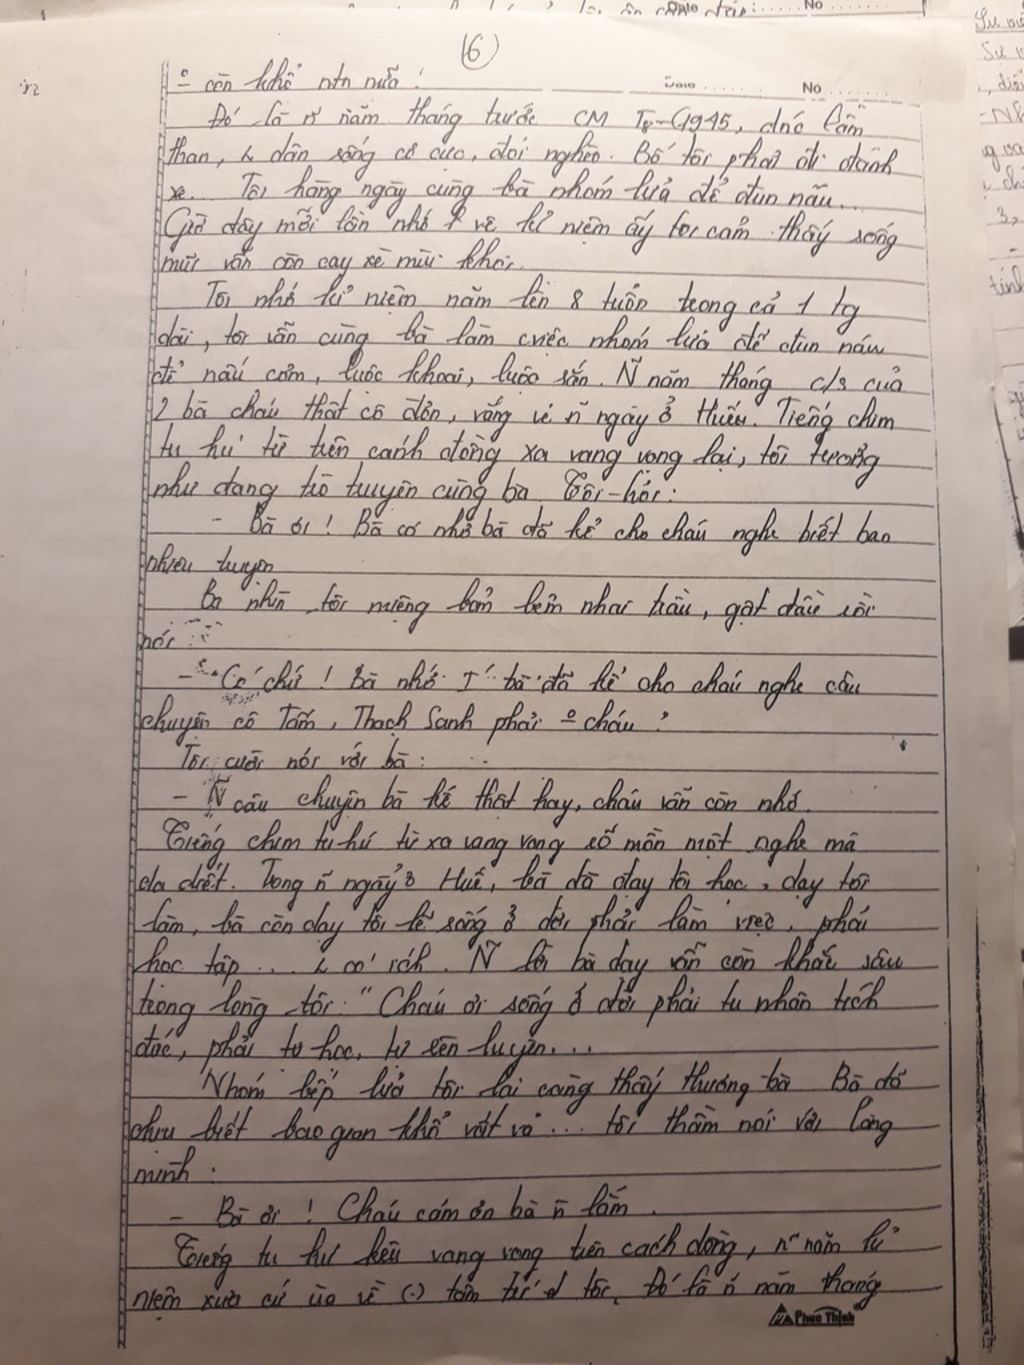 6
No
º còn khổ ntn nữa !
Đó là n~ năm tháng trước CM T8-1945, đnc lầm
than, dân sống cơ cực, đói nghèo. Bố tôi phải đi đánh
xe... Tôi hàng ngày cùng bà nhóm lửa để đun nấu...
Giờ đây mỗi lần nhớ về kỉ niệm ấy tôi cảm thấy sống
mũi vẫn còn cay xè mùi khói.
Tôi nhớ kỉ niệm năm lên 8 tuổi trong cả 1 tg
dài, tôi vẫn cùng bà làm việc nhóm lửa để đun nấu
để nấu cơm, luộc khoai, luộc sắn. N~ năm tháng c/s của
2 bà cháu thật cô đơn, vắng vẻ n~ ngày ở Huế. Tiếng chim
tu hú từ trên cánh đồng xa vang vọng lại, tôi tưởng
như đang trò truyện cùng bà. Tôi hỏi:
- Bà ơi ! Bà có nhớ bà đã kể cho cháu nghe biết bao
nhiêu truyện
Bà nhìn tôi miệng bỏm bẻm nhai trầu, gật đầu rồi
nói :
- Có chứ ! Bà nhớ bà đã kể cho cháu nghe câu
chuyện cô Tấm, Thạch Sanh phải º cháu ?
Tôi cười nói với bà :
- N~ câu chuyện bà kể thật hay, cháu vẫn còn nhớ.
Tiếng chim tu hú từ xa vang vọng mồn một nghe mà
da diết. Trong n~ ngày ở Huế, bà đã dạy tôi học, dạy tôi
làm, bà còn dạy tôi lẽ sống ở đời phải làm việc, phải
học tập ... có ích. N~ lời bà dạy vẫn còn khắc sâu
trong lòng tôi "Cháu ơi sống ở đời phải tu nhân tích
đức, phải tự học, tự rèn luyện...
Nhóm bếp lửa tôi lại càng thấy thương bà Bà đã
chịu biết bao gian khổ vất vả ... tôi thầm nói với lòng
mình :
- Bà ơi ! Cháu cám ơn bà n~ lắm.
Tiếng tu hú kêu vang vọng trên cách đồng, n~ năm kỉ
niệm xưa cứ ùa về (.) tâm trí tôi. Đó là n~ năm tháng
Phúc Thịnh